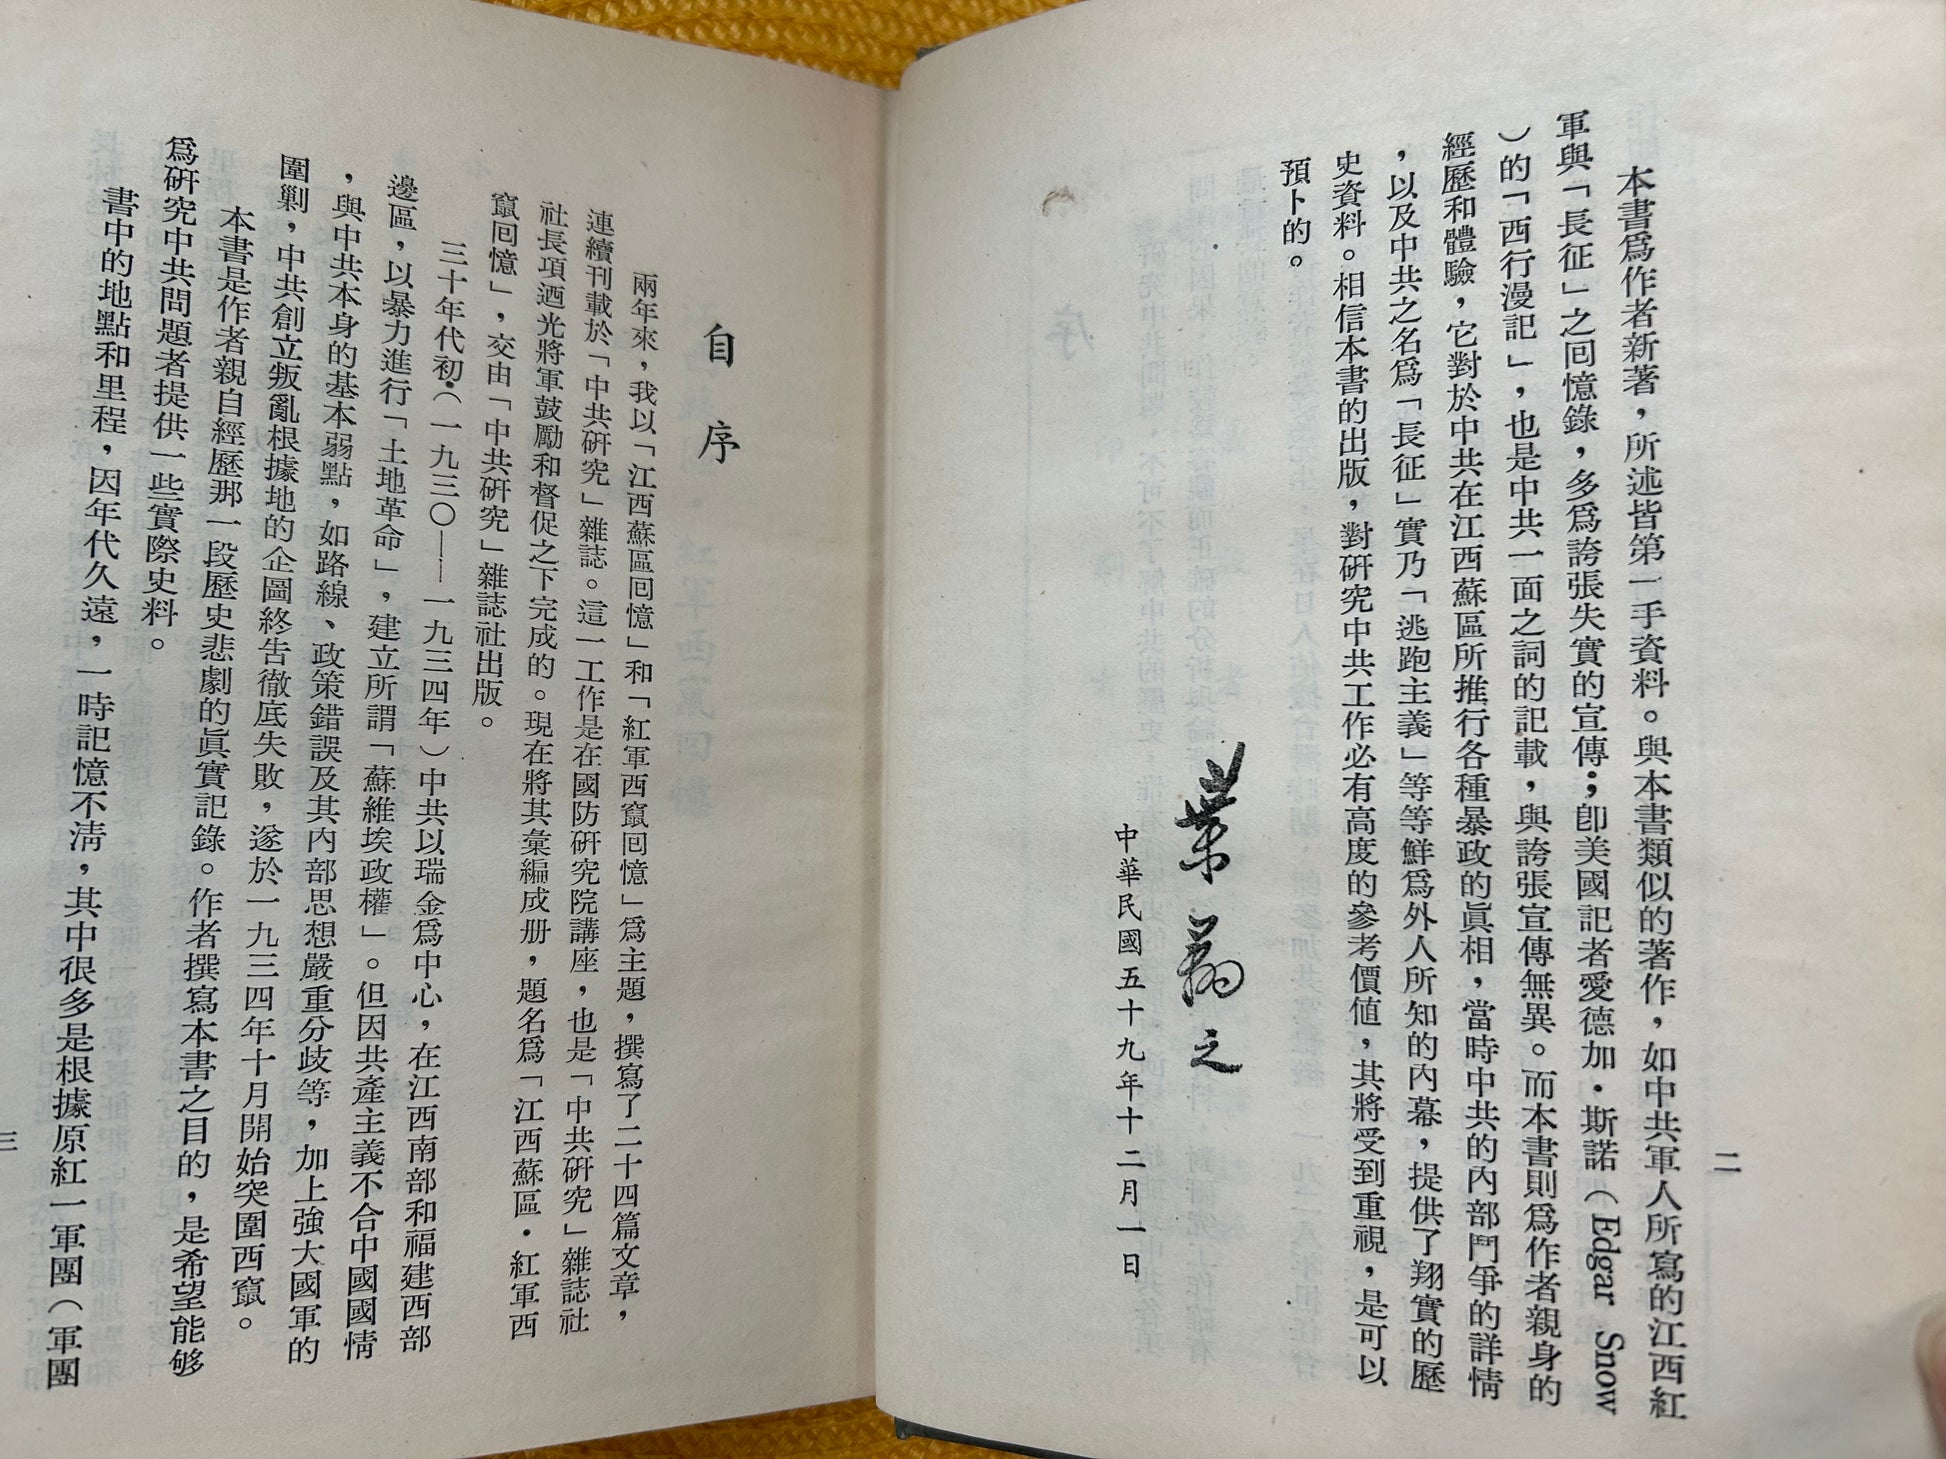 二
本書爲作者新著，所述皆第一手資料。與本書類似的著作，如中共軍人所寫的江西紅
軍與「長征」之回憶錄，多爲誇張失實的宣傳；卽美國記者愛德加・斯諾（Edgar Snow
）的「西行漫記」，也是中共一面之詞的記載，與誇張宣傳無異。而本書則爲作者親身的
經歷和體驗，它對於中共在江西蘇區所推行各種暴政的眞相，當時中共的內部鬥爭的詳情
，以及中共之名爲「長征」實乃「逃跑主義」等等鮮爲外人所知的內幕，提供了翔實的歷
史資料。相信本書的出版，對研究中共工作必有高度的參考價值，其將受到重視，是可以
預卜的。
葉翔之
中華民國五十九年十二月一日
自序
兩年來，我以「江西蘇區回憶」和「紅軍西竄回憶」爲主題，撰寫了二十四篇文章，
連續刊載於「中共研究」雜誌。這一工作是在國防研究院講座，也是「中共研究」雜誌社
社長項迺光將軍鼓勵和督促之下完成的。現在將其彙編成册，題名爲「江西蘇區・紅軍西
竄回憶」，交由「中共研究」雜誌社出版。
三十年代初（一九三〇——一九三四年）中共以瑞金爲中心，在江西南部和福建西部
邊區，以暴力進行「土地革命」，建立所謂「蘇維埃政權」。但因共產主義不合中國國情
，與中共本身的基本弱點，如路線、政策錯誤及其內部思想嚴重分歧等，加上強大國軍的
圍剿，中共創立叛亂根據地的企圖終告徹底失敗，遂於一九三四年十月開始突圍西竄。
本書是作者親自經歷那一段歷史悲劇的眞實記錄。作者撰寫本書之目的，是希望能够
爲研究中共問題者提供一些實際史料。
書中的地點和里程，因年代久遠，一時記憶不淸，其中很多是根據原紅一軍團（軍團
三